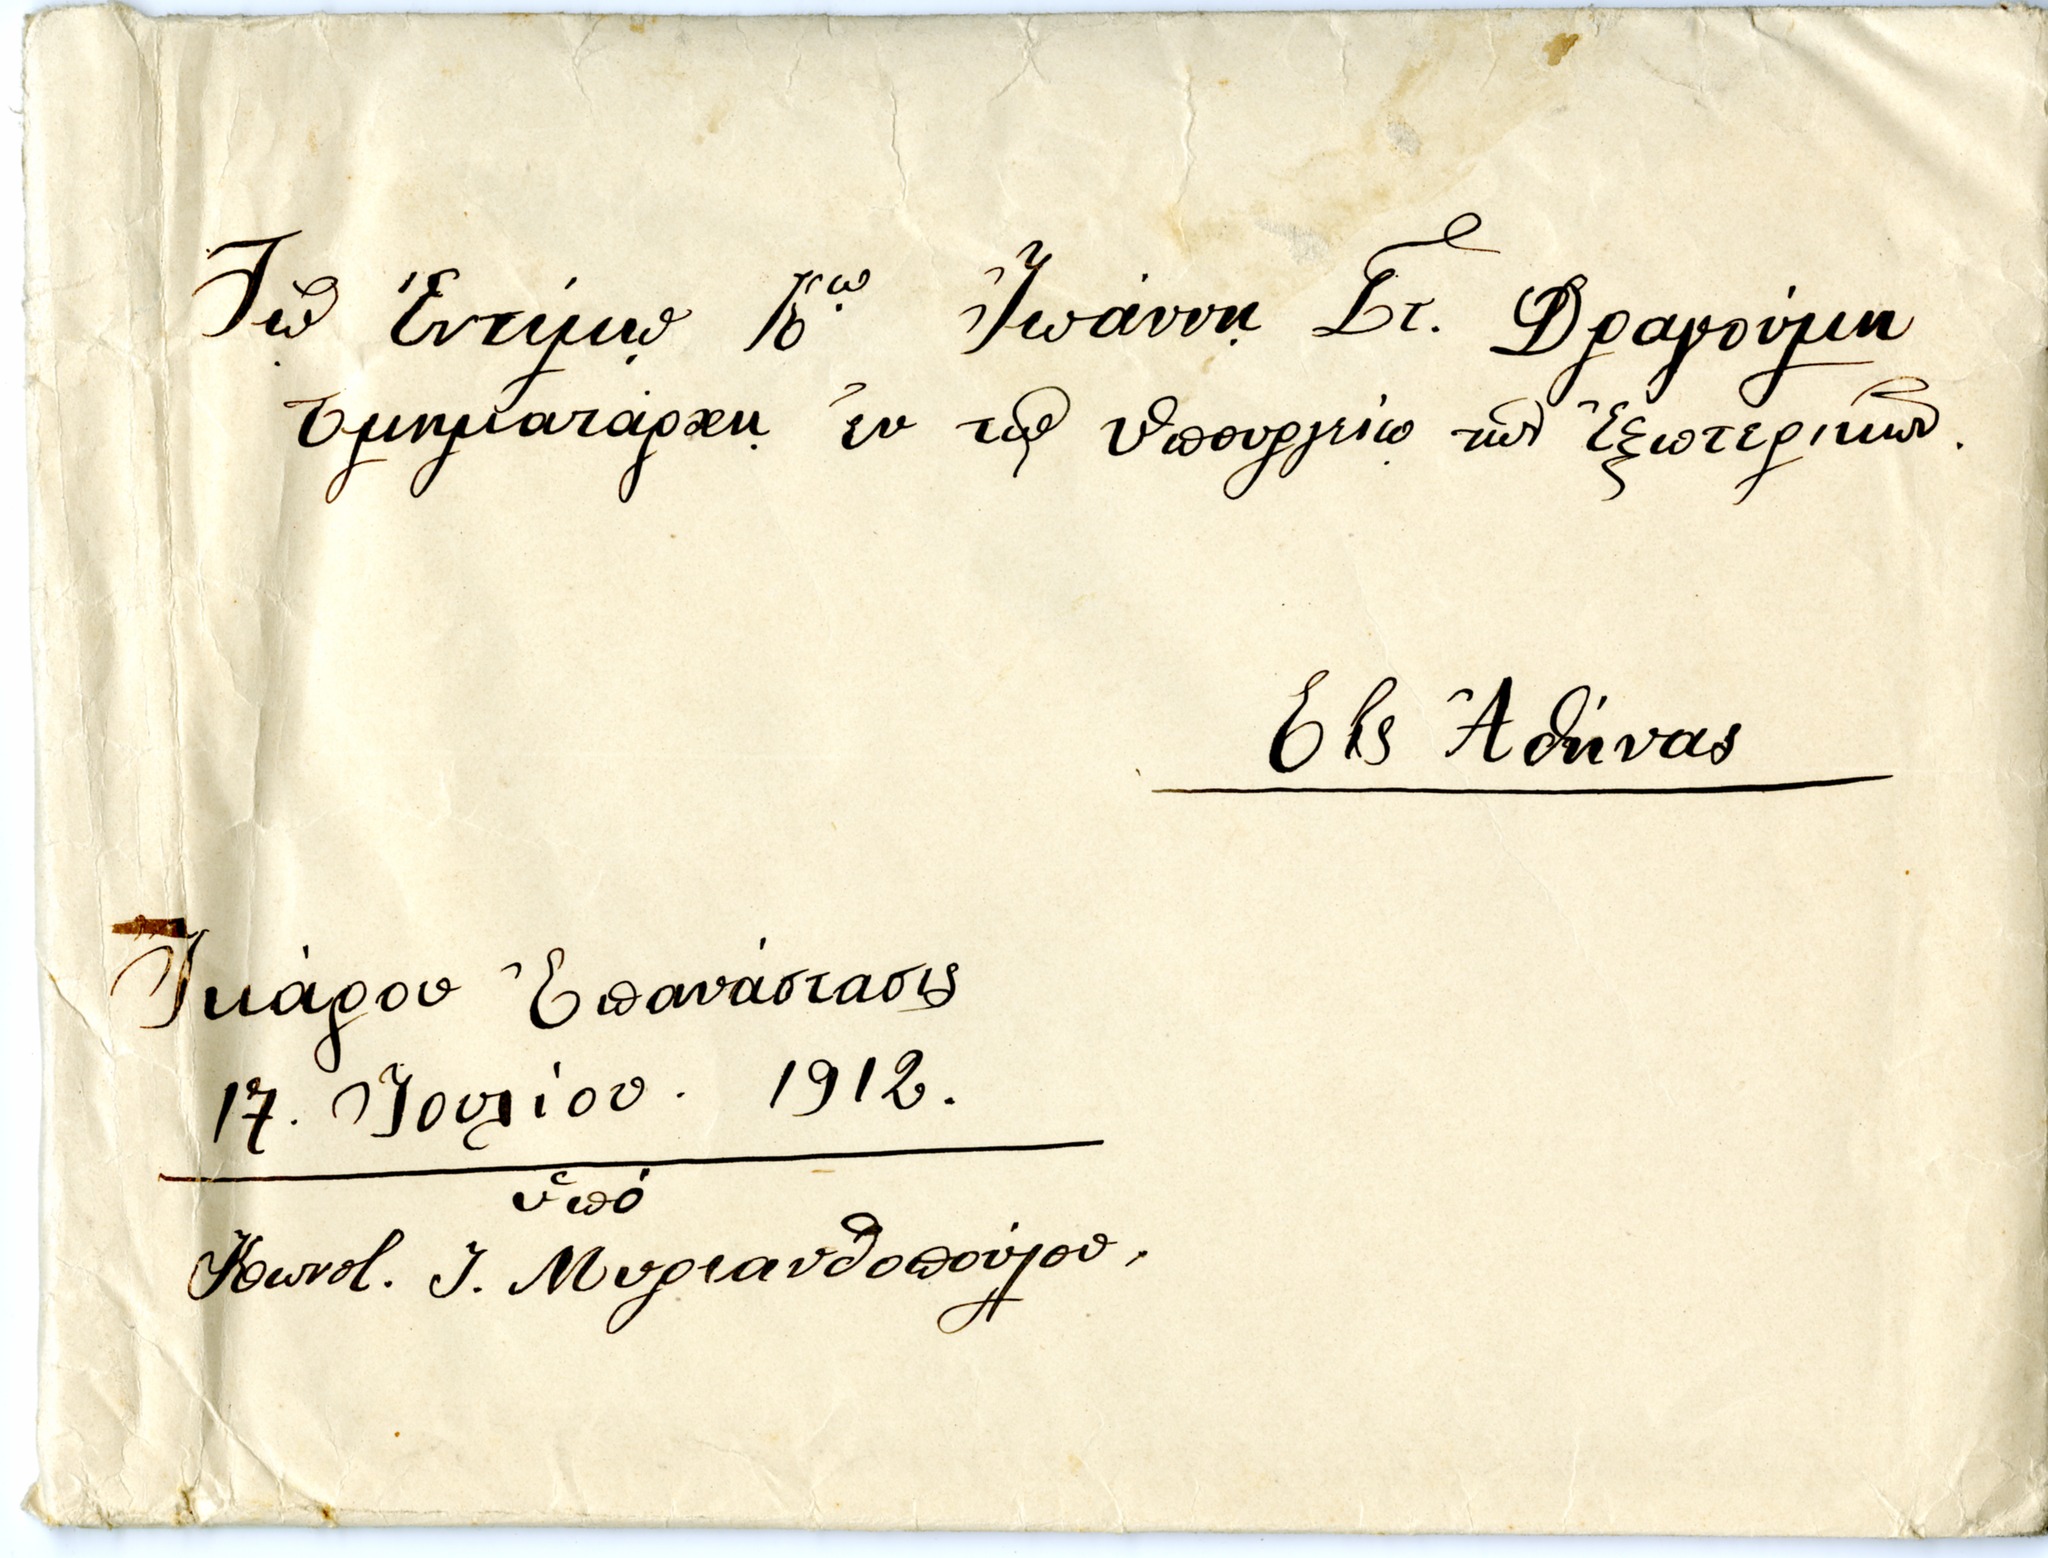 Τῷ Ἐντίμῳ Κῳ Ἰωάννῃ Στ. Δραγούμῃ
τμηματάρχῃ ἐν τῷ Ὑπουργείῳ τῶν Ἐξωτερικῶν.
Εἰς Ἀθήνας
Ἰκάρου Ἐπανάστασις
17. Ἰουλίου. 1912.
ὑπό
Κωνσ. Ι. Μυριανθοπούλου.